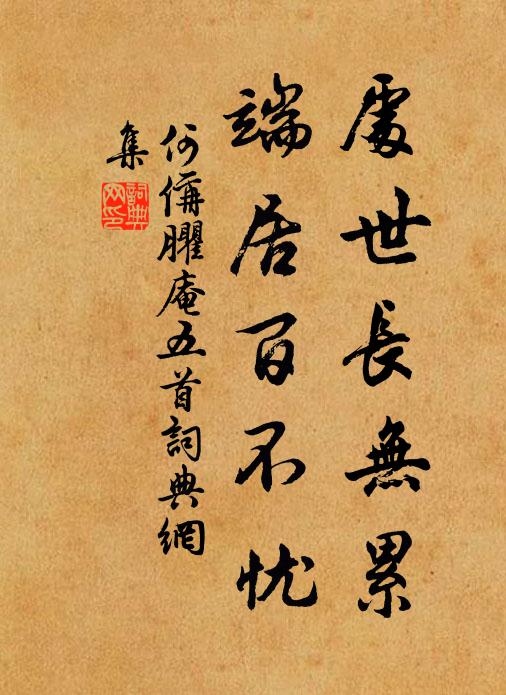 處世長無累
端居百不忧
何俌臞庵五首詞典網
集
詞典
网印